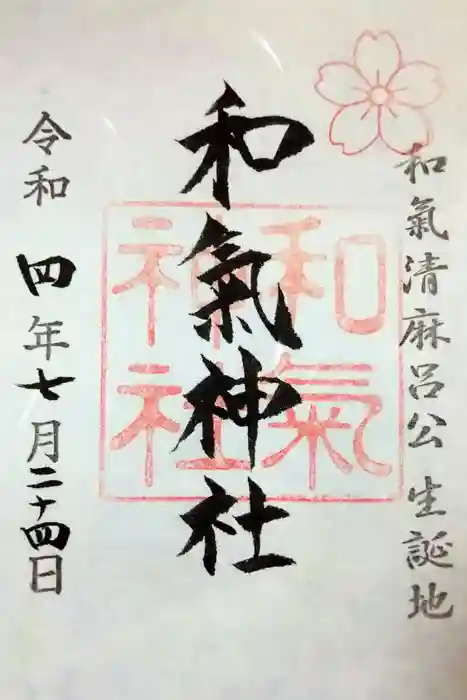 和氣清麻呂公 生誕地
和氣神社
和氣
神社
令和 四年七月二十四日